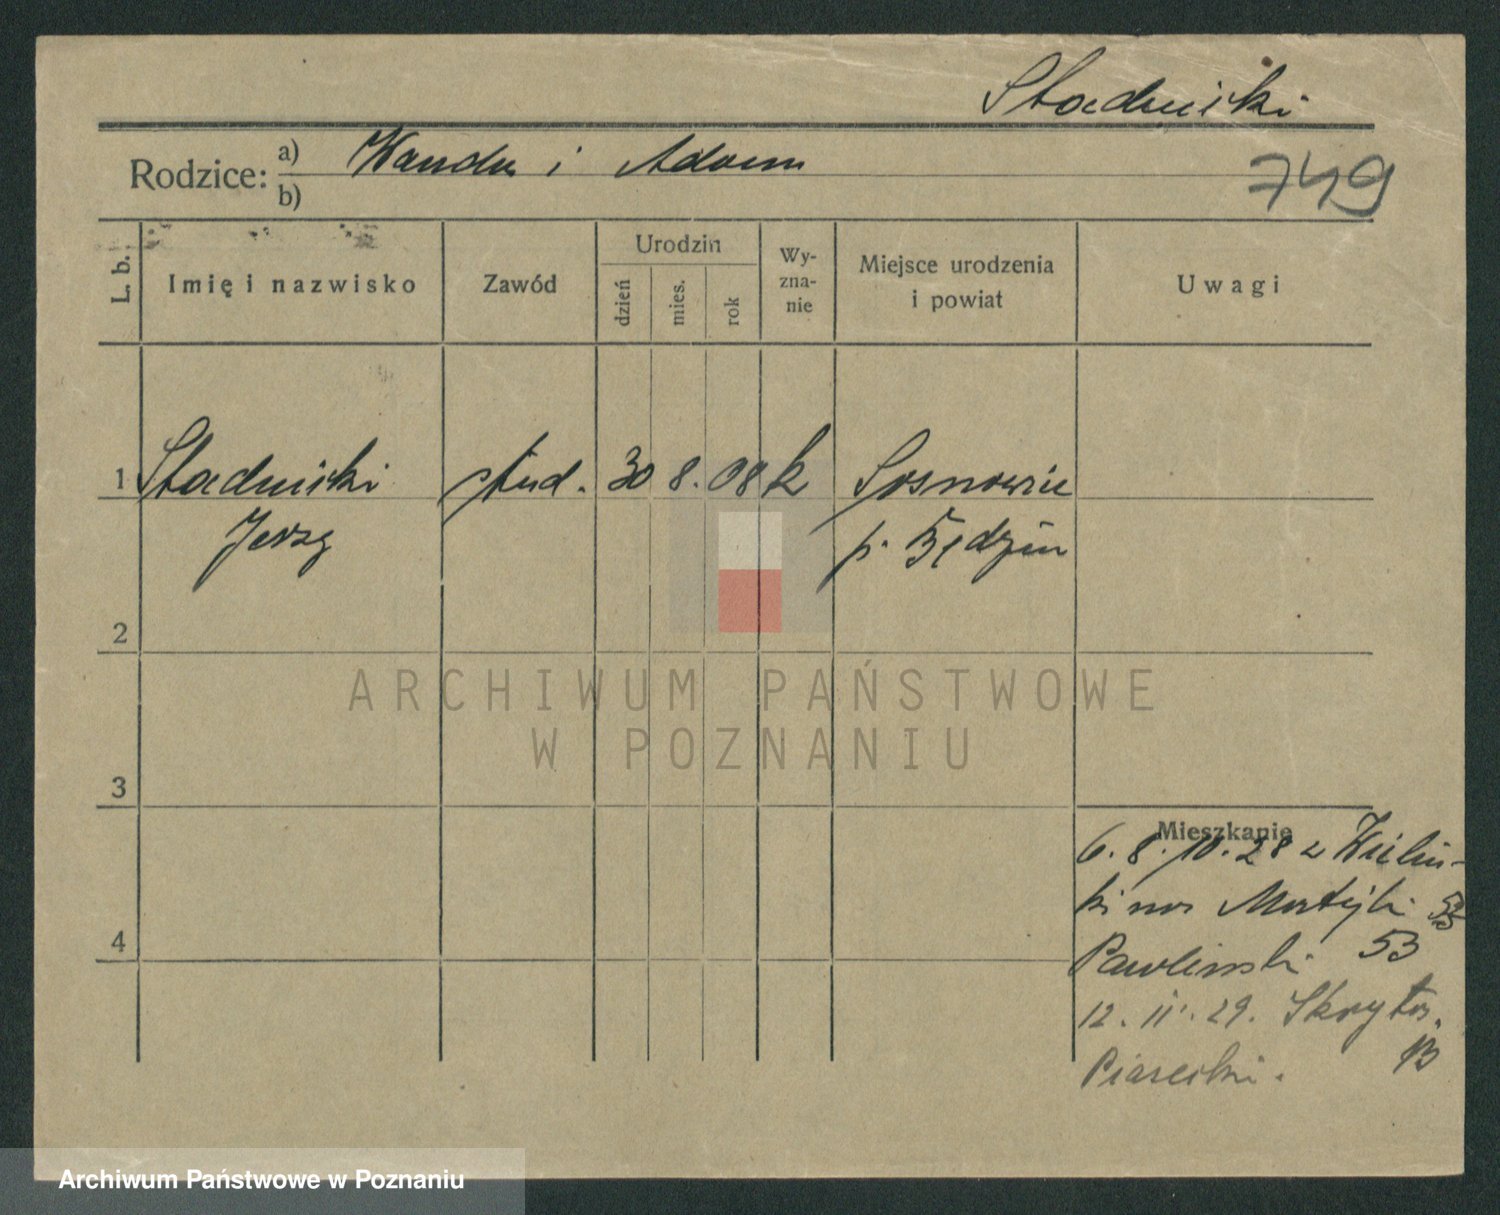 Stadnicki
Rodzice: a) Wanda i Adam
b)
749
L. b. Imię i nazwisko Zawód Urodzin dzień mies. rok Wy-zna-nie Miejsce urodzenia i powiat Uwagi
1 Stadnicki stud. 30 8. 08 k Sosnowiec
Jerzy p. Będzin
2
ARCHIWUM PAŃSTWOWE
W POZNANIU
3
Mieszkanie
6. 8. 10. 28 z
Matejki
4
Pawlinski 53
12. 11. 29.
Piasecki.
Archiwum Państwowe w Poznaniu